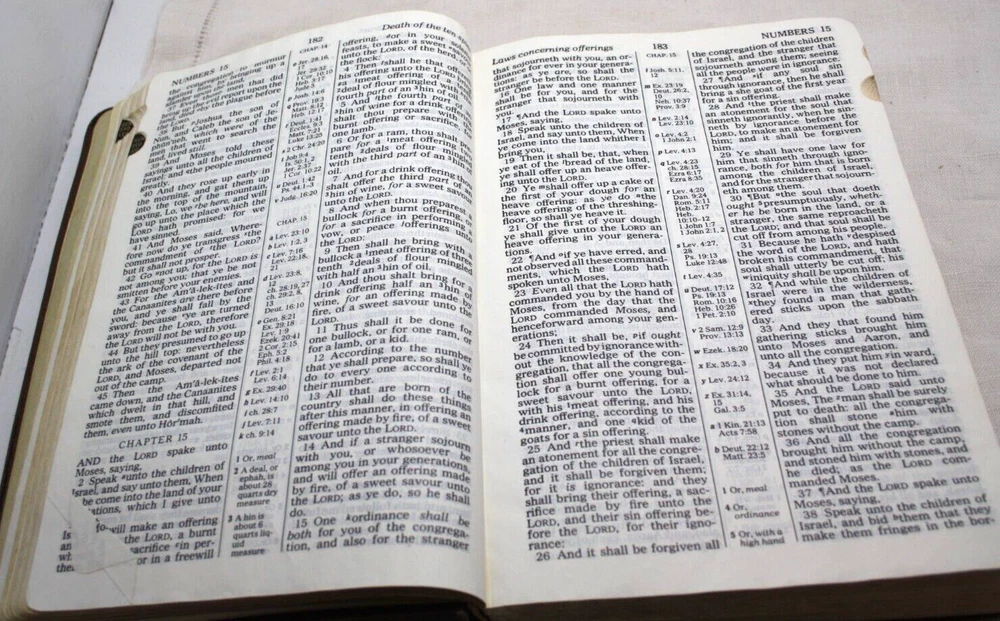 NUMBERS 15
182
Death of the ten
the plague before
the LORD.
38 But Joshua the son of
and Caleb the son of Je-
which were of the
search the
39 And Moses told these
sayings unto all the children of
Israel: and the people mourned
greatly.
40 And they rose up early in
the morning, and gat them up
into the top of the mountain,
saying, Lo, we be here, and will
go up unto the place which the
LORD hath promised: for we
have sinned.
41 And Moses said, Where-
fore now do ye transgress the
commandment of the LORD?
but it shall not prosper.
42 Go not up, for the LORD is
not among you; that ye be not
smitten before your enemies.
43 For the Am´ă-lek-ites and
the Canaanites are there before
you, and ye shall fall by the
sword: because ye are turned
away from the LORD, therefore
the LORD will not be with you.
44 But they presumed to go up
unto the hill top: nevertheless
the ark of the covenant of the
LORD, and Moses, departed not
out of the camp.
45 Then the Am´ă-lek-ites
came down, and the Canaanites
which dwelt in that hill, and
smote them, and discomfited
them, even unto Hôr´mah.
CHAPTER 15
AND the LORD spake unto
Moses, saying,
2 Speak unto the children of
Israel, and say unto them, When
be come into the land of your
tations, which I give unto
will make an offering
the LORD, a burnt
sacrifice in per-
or in a freewill
CHAP. 14
2 Chr. 24:20
Judg. 16:20
CHAP. 15
a Lev. 23:10
b Lev. 1:2, 3
c Lev. 7:16
Lev. 22:18,
21
d Lev. 23:8,
12
ch. 28:19, 27
ch. 29:2, 8,
13
Deut. 16:10
e Gen. 8:21
Ex. 29:18
Lev. 1:9
Ezek. 20:41
2 Cor. 2:15
Eph. 5:2
Phil. 4:18
f Lev. 2:1
Lev. 6:14
g Ex. 29:40
h Lev. 14:10
i ch. 28:7
j Lev. 7:11
k ch. 9:14
1 Or, meal
2 A deal, or
ephah, is
about 28
quarts dry
measure
3 A hin is
about 6
quarts liq-
uid
measure
offering, or in your solemn
feasts, to make a sweet
unto the LORD, of the herd
the flock:
4 Then shall he that offereth
his offering unto the LORD
a meat offering of a
deal of flour mingled with
fourth part of an hin of oil.
5 And the fourth part of
hin of wine for a drink offering
shalt thou prepare with
burnt offering or sacrifice, for
one lamb.
6 Or for a ram, thou shalt
pare for a meat offering
tenth deals of flour mingled
with the third part of an hin
oil.
7 And for a drink offering thou
shalt offer the third part of
hin of wine, for a sweet savour
unto the LORD.
8 And when thou preparest a
bullock for a burnt offering, or
for a sacrifice in performing a
vow, or peace offerings unto
the LORD:
9 Then shall he bring with a
bullock a meat offering of three
tenth deals of flour mingled
with half an hin of oil.
10 And thou shalt bring for a
drink offering half an hin of
wine, for an offering made by
fire, of a sweet savour unto the
LORD.
11 Thus shall it be done for
one bullock, or for one ram, or
for a lamb, or a kid.
12 According to the number
that ye shall prepare, so shall ye
do to every one according to
their number.
13 All that are born of the
country shall do these things
after this manner, in offering an
offering made by fire, of a sweet
savour unto the LORD.
14 And if a stranger sojourn
with you, or whosoever be
among you in your generations,
and will offer an offering made
by fire, of a sweet savour unto
the LORD; as ye do, so he shall
do.
15 One ordinance shall be
both for you of the congrega-
tion, and also for the stranger
Laws concerning offerings
183
NUMBERS 15
that sojourneth with you, an or-
dinance for ever in your genera-
tions: as ye are, so shall the
stranger be before the LORD.
16 One law and one manner
shall be for you, and for the
stranger that sojourneth with
you.
17 ¶And the LORD spake unto
Moses, saying,
18 Speak unto the children of
Israel, and say unto them, When
ye come into the land whither I
bring you,
19 Then it shall be, that, when
ye eat of the bread of the land,
ye shall offer up an heave offer-
ing unto the LORD.
20 Ye shall offer up a cake of
the first of your dough for an
heave offering: as ye do the
heave offering of the threshing-
floor, so shall ye heave it.
21 Of the first of your dough
ye shall give unto the LORD an
heave offering in your genera-
tions.
22 ¶And if ye have erred, and
not observed all these command-
ments, which the LORD hath
spoken unto Moses,
23 Even all that the LORD hath
commanded you by the hand of
Moses, from the day that the
LORD commanded Moses, and
henceforward among your gen-
erations;
24 Then it shall be, if ought
be committed by ignorance with-
out the knowledge of the con-
gregation, that all the congrega-
tion shall offer one young bul-
lock for a burnt offering, for a
sweet savour unto the LORD,
with his meat offering, and his
drink offering, according to the
manner, and one kid of the
goats for a sin offering.
25 And the priest shall make
an atonement for all the congre-
gation of the children of Israel,
and it shall be forgiven them;
for it is ignorance: and they
shall bring their offering, a sac-
rifice made by fire unto the
LORD, and their sin offering be-
fore the LORD, for their igno-
rance:
26 And it shall be forgiven all
CHAP. 15
l Josh. 5:11,
12
m Ex. 23:19
Deut. 26:2,
10
Neh. 10:37
Prov. 3:9
n Lev. 2:14
Lev. 23:10
o Lev. 4:2
1 John 2:1
p Lev. 4:13
q Lev. 4:23
ch. 28:15
Ezra 6:17
Ezra 8:35
r Lev. 4:20
Dan. 9:24
Rom. 5:11
Heb. 2:17
Heb.
10:10-12
1 John 1:7
1 John 2:1, 2
s Lev. 4:27,
28
Ps. 19:13
Luke 12:48
t Lev. 4:35
u Deut. 17:12
Ps. 19:13
Rom. 10:16
Heb. 10:26
1 Pet. 2:10
v 2 Sam. 12:9
Prov. 13:13
w Ezek. 18:20
x Ex. 35:2, 3
y Lev. 24:12
z Ex. 31:14,
15
Gal. 3:5
a 1 Kin. 21:13
Acts 7:58
b Deut. 22:12
Matt. 23:5
1 Or, meal
4 Or,
ordinance
5 Or, with a
high hand
the congregation of the children
of Israel, and the stranger that
sojourneth among them; seeing
all the people were in ignorance.
27 ¶And if any soul sin
through ignorance, then he shall
bring a she goat of the first year
for a sin offering.
28 And the priest shall make
an atonement for the soul that
sinneth ignorantly, when he sin-
neth by ignorance before the
LORD, to make an atonement for
him; and it shall be forgiven
him.
29 Ye shall have one law for
him that sinneth through igno-
rance, both for him that is born
among the children of Israel,
and for the stranger that sojourn-
eth among them.
30 ¶But the soul that doeth
ought presumptuously, wheth-
er he be born in the land, or a
stranger, the same reproacheth
the LORD; and that soul shall be
cut off from among his people.
31 Because he hath despised
the word of the LORD, and hath
broken his commandment, that
soul shall utterly be cut off; his
iniquity shall be upon him.
32 ¶And while the children of
Israel were in the wilderness,
they found a man that gath-
ered sticks upon the sabbath
day.
33 And they that found him
gathering sticks brought him
unto Moses and Aaron, and
unto all the congregation.
34 And they put him in ward,
because it was not declared
what should be done to him.
35 And the LORD said unto
Moses, The man shall be surely
put to death: all the congrega-
tion shall stone him with
stones without the camp.
36 And all the congregation
brought him without the camp,
and stoned him with stones, and
he died; as the LORD com-
manded Moses.
37 ¶And the LORD spake unto
Moses, saying,
38 Speak unto the children of
Israel, and bid them that they
make them fringes in the bor-